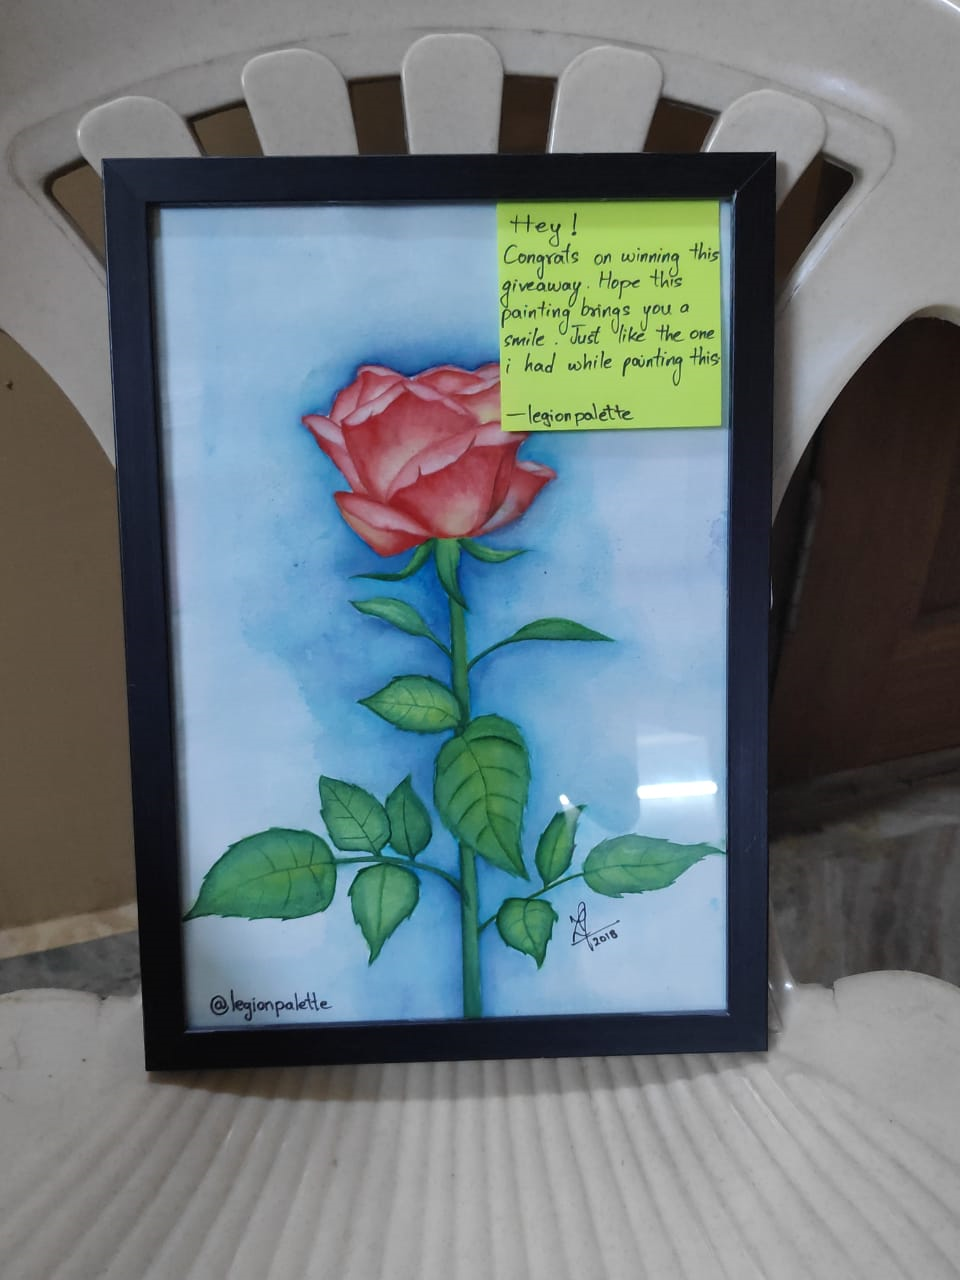 Hey!
Congrats on winning this
giveaway. Hope this
painting brings you a
smile. Just like the one
i had while painting this.
—legionpalette
2018
@legionpalette